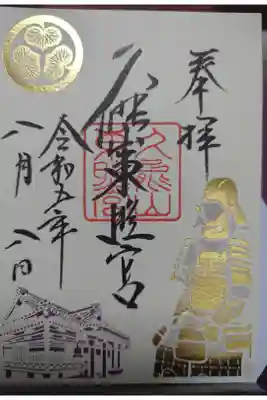 奉拝
久能山東照宮
久能山
東照宮
令和五年
八月八日